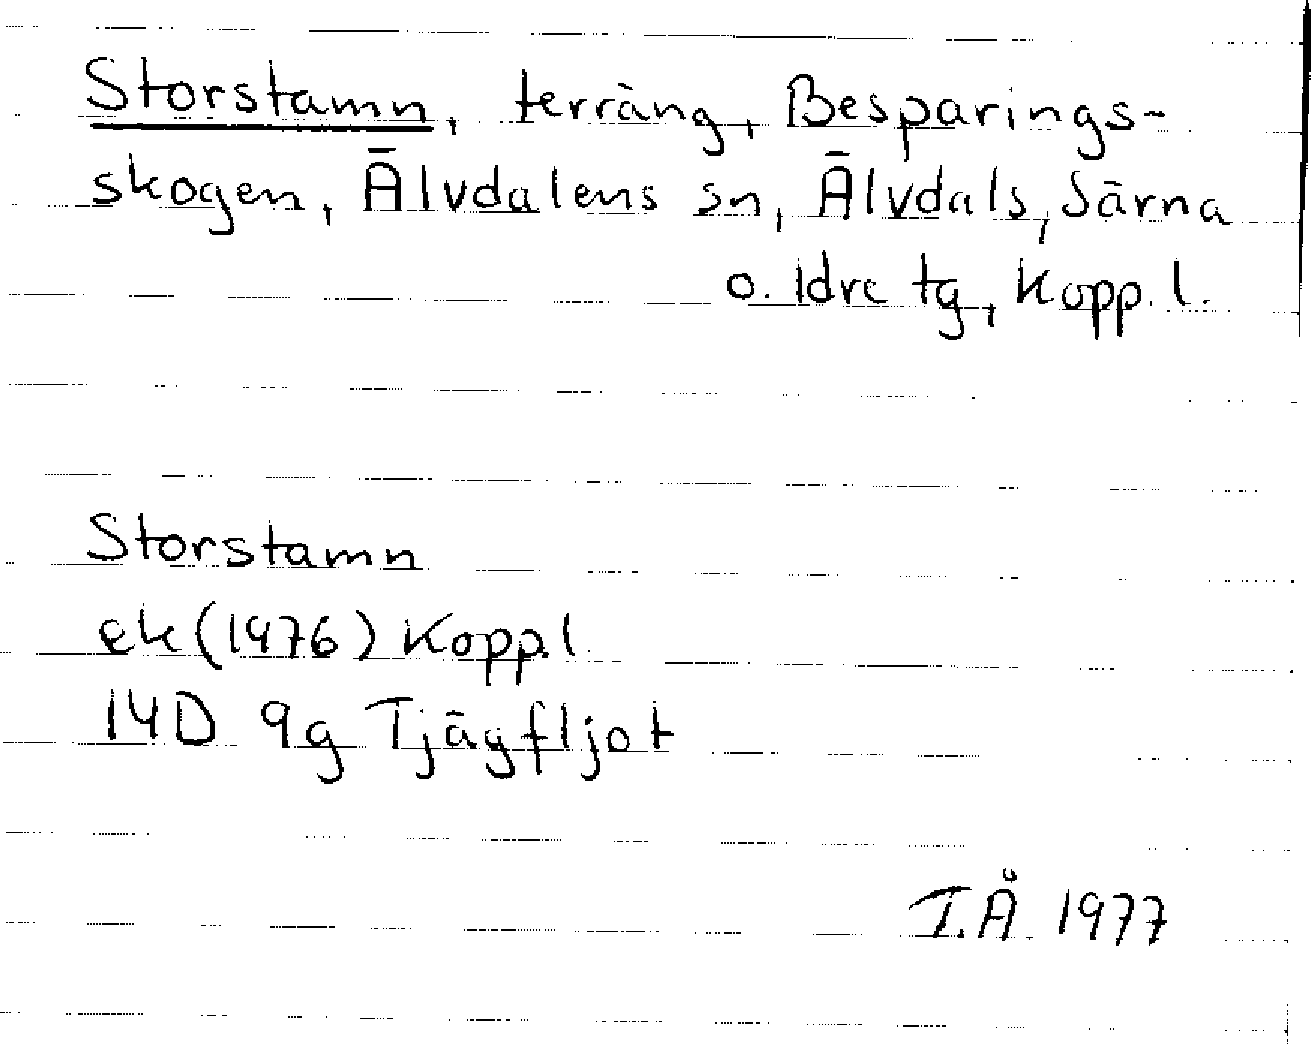 Storstamn, terräng, Besparings-
skogen, Älvdalens sn, Älvdals, Särna
o. Idre tg, Kopp. l.
Storstamn
ek (1976) Kopp.l.
14D 9g Tjägfljot
T.Å. 1977